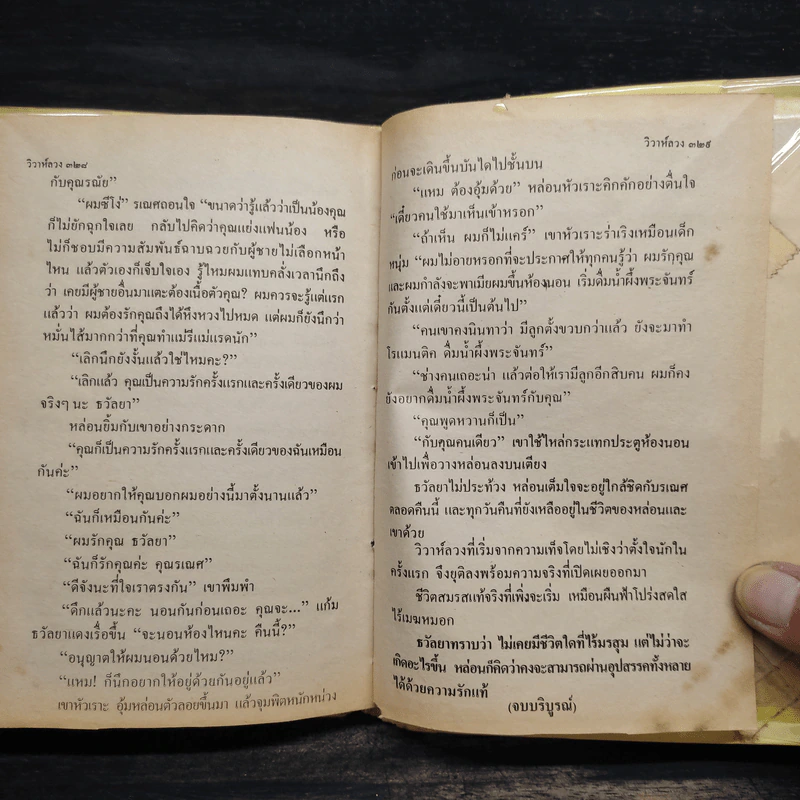 วิวาห์ลวง ๓๒๘
กับคุณรณัย”
“ผมซีโง่” รเณศถอนใจ “ขนาดว่ารู้แล้วว่าเป็นน้องคุณ
ก็ไม่ยักฉุกใจเลย กลับไปคิดว่าคุณแย่งแฟนน้อง หรือ
ไม่ก็ชอบมีความสัมพันธ์ฉาบฉวยกับผู้ชายไม่เลือกหน้า
ไหน แล้วตัวเองก็เจ็บใจเอง รู้ไหมผมแทบคลั่งเวลานึกถึง
ว่า เคยมีผู้ชายอื่นมาแตะต้องเนื้อตัวคุณ? ผมควรจะรู้แต่แรก
แล้วว่า ผมต้องรักคุณถึงได้หึงหวงไปหมด แต่ผมก็ยังนึกว่า
หมั่นไส้มากกว่าที่คุณทำแม้รีแม่แรดนัก”
“เลิกนึกยังงั้นแล้วใช่ไหมคะ?”
“เลิกแล้ว คุณเป็นความรักครั้งแรกและครั้งเดียวของผม
จริงๆ นะ ธวัลยา”
หล่อนยิ้มกับเขาอย่างกระดาก
“คุณก็เป็นความรักครั้งแรกและครั้งเดียวของฉันเหมือน
กันค่ะ”
“ผมอยากให้คุณบอกผมอย่างนี้มาตั้งนานแล้ว”
“ฉันก็เหมือนกันค่ะ”
“ผมรักคุณ ธวัลยา”
“ฉันก็รักคุณค่ะ คุณรเณศ”
“ดีจังนะที่ใจเราตรงกัน” เขาพึมพำ
“ดึกแล้วนะคะ นอนกันก่อนเถอะ คุณจะ...” แก้ม
ธวัลยาแดงเรื่อขึ้น “จะนอนห้องไหนคะ คืนนี้?”
“อนุญาตให้ผมนอนด้วยไหม?”
“แหม! ก็นึกอยากให้อยู่ด้วยกันอยู่แล้ว”
เขาหัวเราะ อุ้มหล่อนตัวลอยขึ้นมา แล้วจุมพิตหนักหน่วง
วิวาห์ลวง ๓๒๙
ก่อนจะเดินขึ้นบันไดไปชั้นบน
“แหม ต้องอุ้มด้วย” หล่อนหัวเราะคิกคักอย่างตื่นใจ
“เดี๋ยวคนใช้มาเห็นเข้าหรอก”
“ถ้าเห็น ผมก็ไม่แคร์” เขาหัวเราะร่าเริงเหมือนเด็ก
หนุ่ม “ผมไม่อายหรอกที่จะประกาศให้ทุกคนรู้ว่า ผมรักคุณ
และผมกำลังจะพาเมียผมขึ้นห้องนอน เริ่มดื่มน้ำผึ้งพระจันทร์
กันตั้งแต่เดี๋ยวนี้เป็นต้นไป”
“คนเขาคงนินทาว่า มีลูกตั้งขวบกว่าแล้ว ยังจะมาทำ
โรแมนติค ดื่มน้ำผึ้งพระจันทร์”
“ช่างคนเถอะน่า แล้วต่อให้เรามีลูกอีกสิบคน ผมก็คง
ยังอยากดื่มน้ำผึ้งพระจันทร์กับคุณ”
“คุณพูดหวานก็เป็น”
“กับคุณคนเดียว” เขาใช้ไหล่กระแทกประตูห้องนอน
เข้าไปเพื่อวางหล่อนลงบนเตียง
ธวัลยาไม่ประท้วง หล่อนเต็มใจจะอยู่ใกล้ชิดกับรเณศ
ตลอดคืนนี้ และทุกวันคืนที่ยังเหลืออยู่ในชีวิตของหล่อนและ
เขาด้วย
วิวาห์ลวงที่เริ่มจากความเท็จโดยไม่เชิงว่าตั้งใจนักใน
ครั้งแรก จึงยุติลงพร้อมความจริงที่เปิดเผยออกมา
ชีวิตสมรสแท้จริงที่เพิ่งจะเริ่ม เหมือนผืนฟ้าโปร่งสดใส
ไร้เมฆหมอก
ธวัลยาทราบว่า ไม่เคยมีชีวิตใดที่ไร้มรสุม แต่ไม่ว่าจะ
เกิดอะไรขึ้น หล่อนก็คิดว่าคงจะสามารถผ่านอุปสรรคทั้งหลาย
ได้ด้วยความรักแท้
(จบบริบูรณ์)